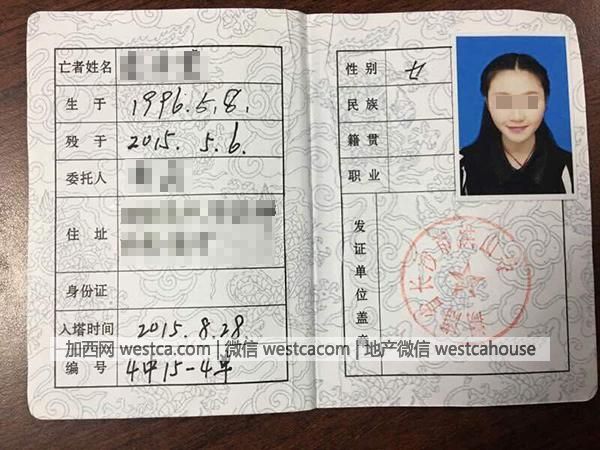 亡者姓名
生 于 1996.5.8.
殁 于 2015. 5.6.
委托人
住 址
身份证
入塔时间 2015.8.28
编 号 4中15-4单
性 别 女
民 族
籍 贯
职 业
发证单位盖章
长沙
加西网 westca.com | 微信 westcacom | 地产微信 westcahouse